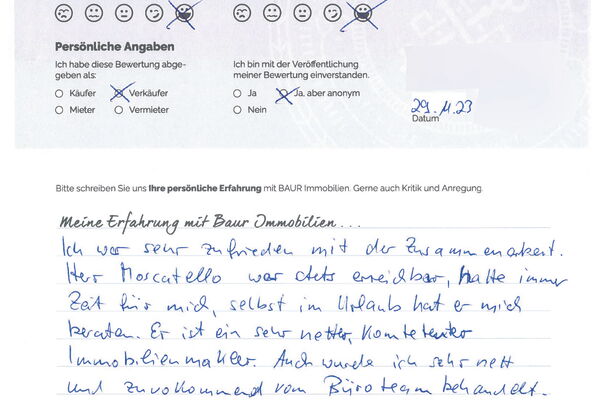 Persönliche Angaben
Ich habe diese Bewertung abge-
geben als:
Käufer Verkäufer
Mieter Vermieter
Ich bin mit der Veröffentlichung
meiner Bewertung einverstanden.
Ja Ja, aber anonym
Nein
29.11.23
Datum
Bitte schreiben Sie uns Ihre persönliche Erfahrung mit BAUR Immobilien. Gerne auch Kritik und Anregung.
Meine Erfahrung mit Baur Immobilien...
Ich war sehr zufrieden mit der Zusammenarbeit.
Herr Moscatello war stets erreichbar, hatte immer
Zeit für mich, selbst im Urlaub hat er mich
beraten. Er ist ein sehr netter, kompetenter
Immobilienmakler. Auch wurde ich sehr nett
und zuvokommend vom Büroteam behandelt.